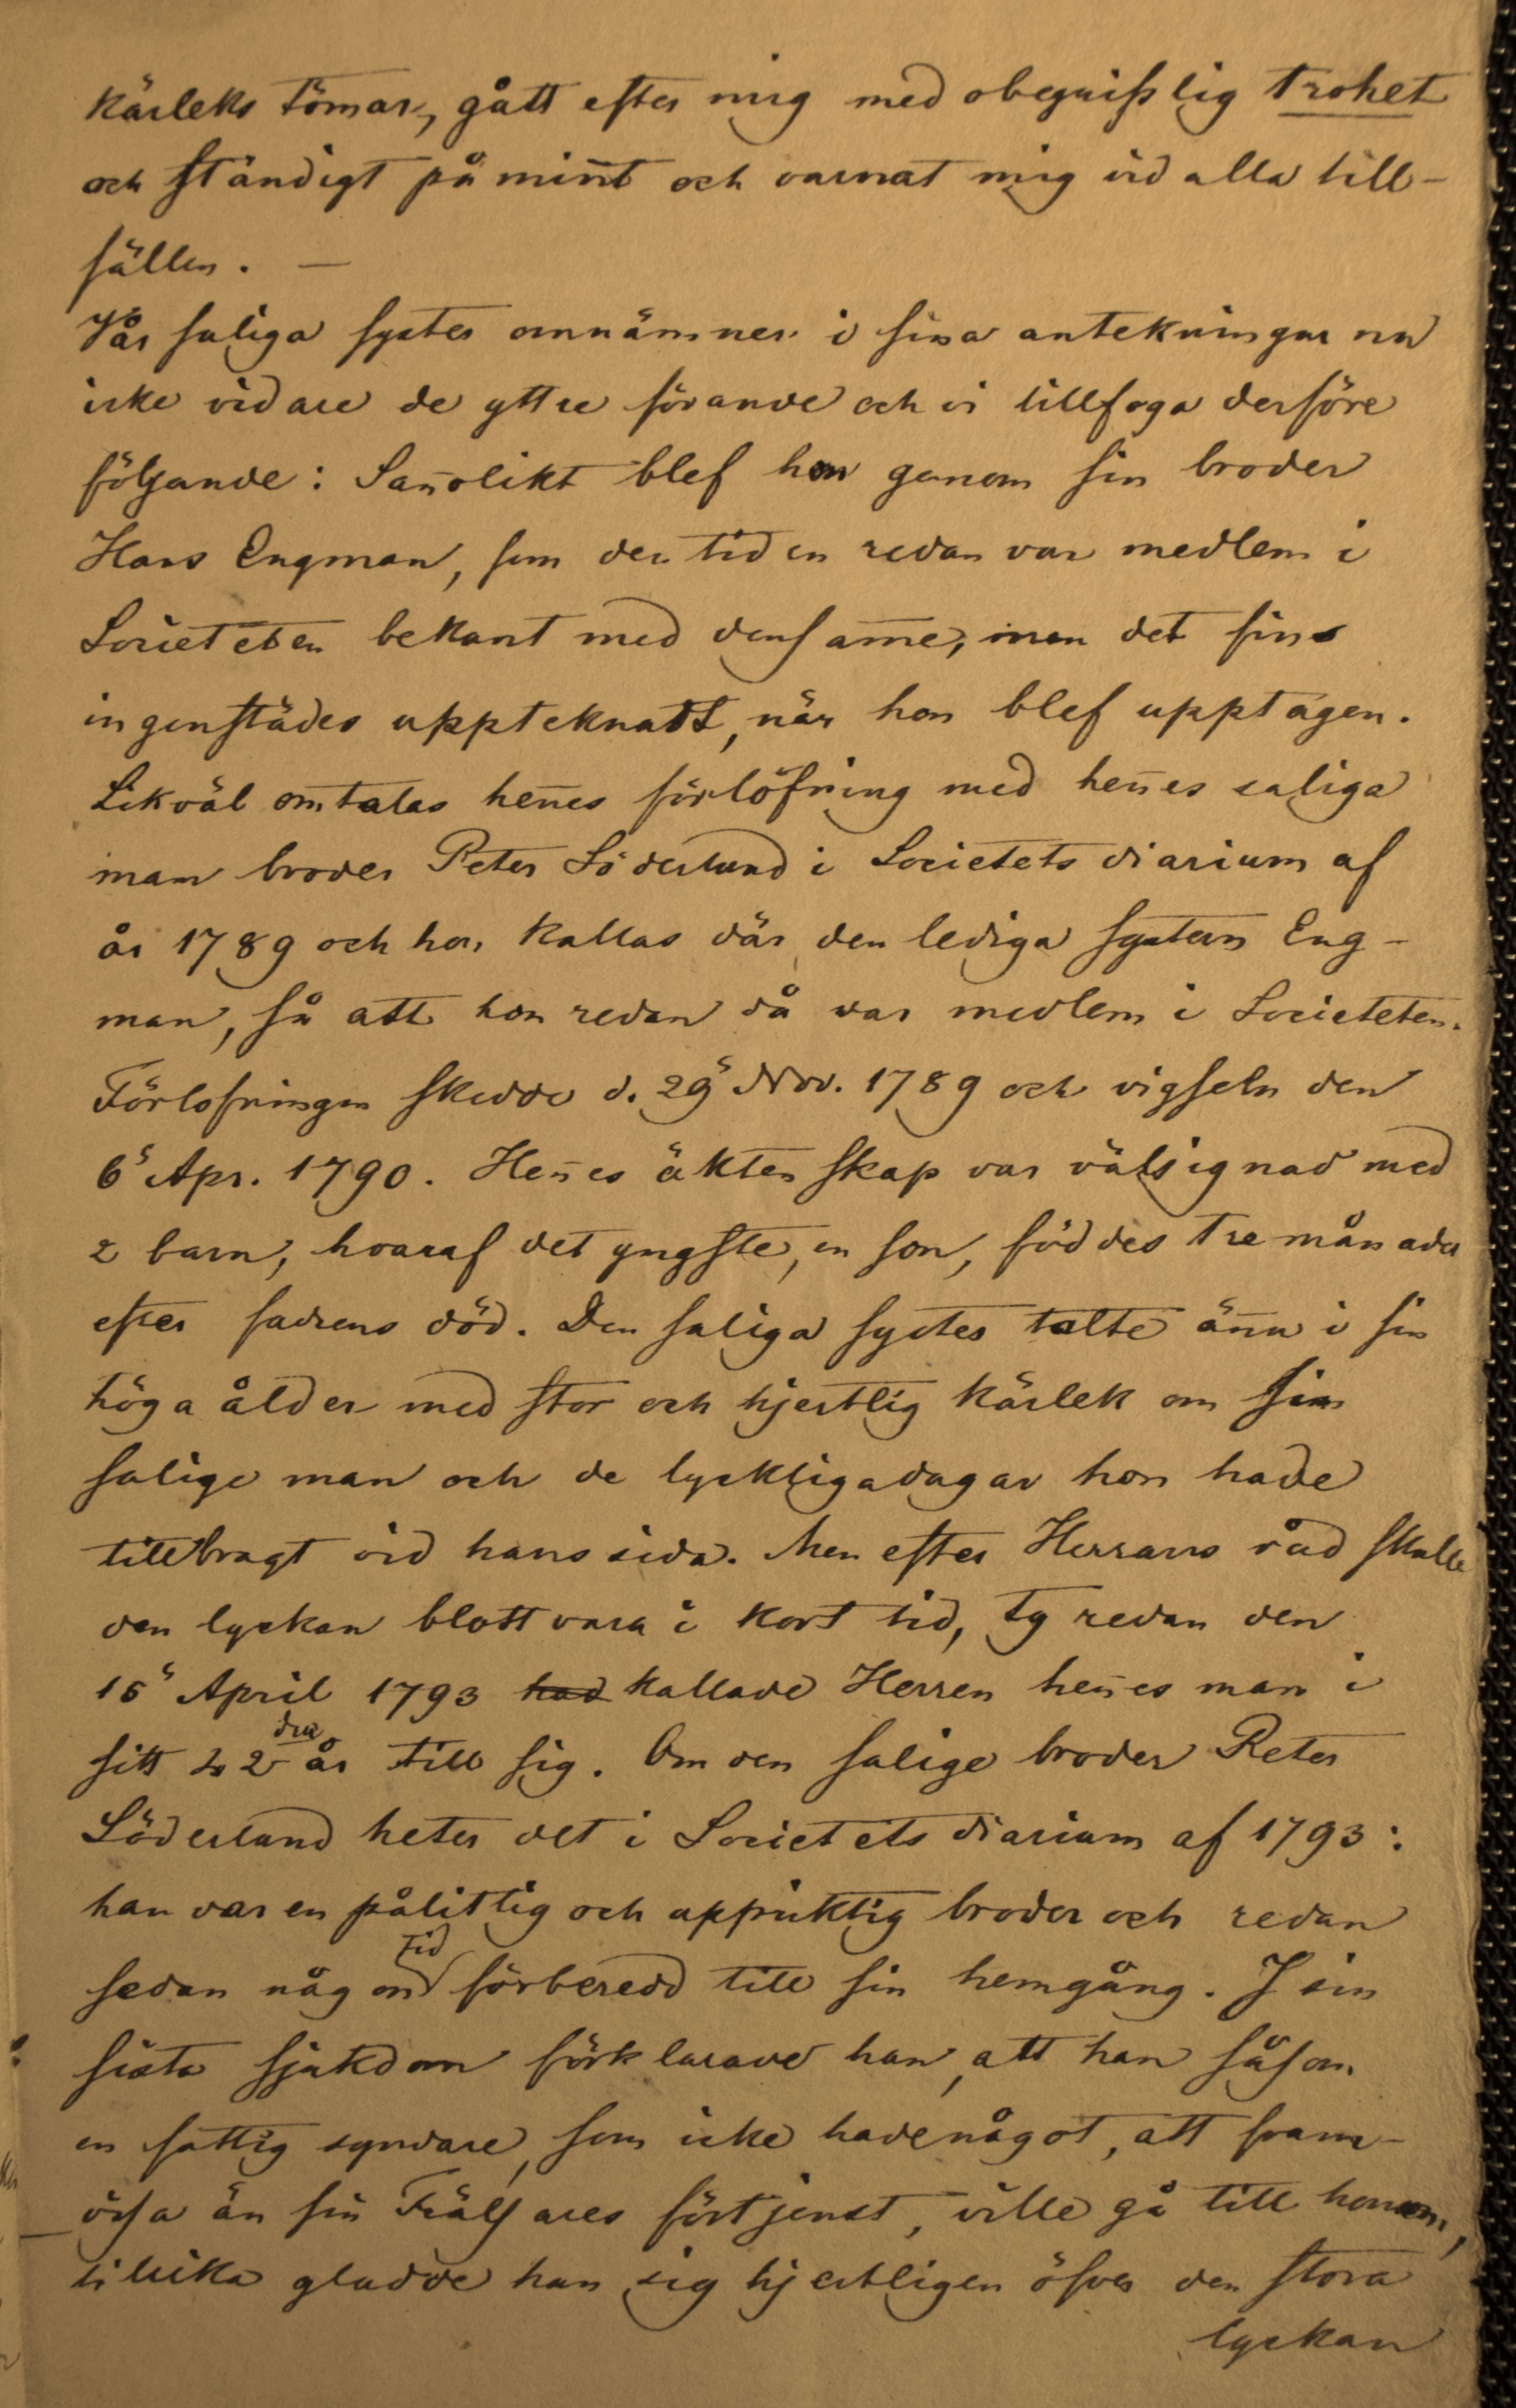 kärleks tömar, gått efter mig med obegriplig trohet
och ständigt påmin̄t och varnat mig vid alla till-
fällen. —
Vår saliga syster omnämner i sina antekningar nu
icke vidare de yttre förande och vi tillfoga derföre
följande: San̄olikt blef hon genom sin broder
Hans Engman, som den tiden redan var medlem i
Societeten bekant med densam̄e, men det fins
ingenstädes uppteknatt, när hon blef upptagen.
Likväl om̄talas hen̄es förlöfning med hen̄es saliga
man broder Peter Söderlund i Societets diarium af
år 1789 och hon kallas där den lediga systern Eng-
man, så att hon redan då var medlem i Societeten.
Förlofningen skedde d. 29 Nov. 1789 och vigseln den
6 Apr. 1790. Hen̄es äktenskap var välsignad med
2 barn, hvaraf det yngste, en son, föddes tre månader
efter fadrens död. Den saliga syster talte än̄u i sin
höga ålder med stor och hjertlig kärlek om sin
salige man och de lyckliga dagar hon hade
tillbragt vid hans sida. Men efter Herrans råd skulle
den lyckan blott vara i kort tid, ty redan den
15 April 1793 had kallade Herren hen̄es man i
sitt 42 dra år till sig. Om den salige broder Peter
Söderlund heter det i Societets diarium af 1793:
han var en pålitlig och uppriktig broder och redan
sedan någon tid förberedd till sin hemgång. I sin
sista sjukdom förklarade han, att han såsom
en fattig syndare, som icke hade något, att fram-
visa än sin Frälsares förtjenst, ville gå till honom,
tillika gladde han sig hjertligen öfver den stora
lyckan